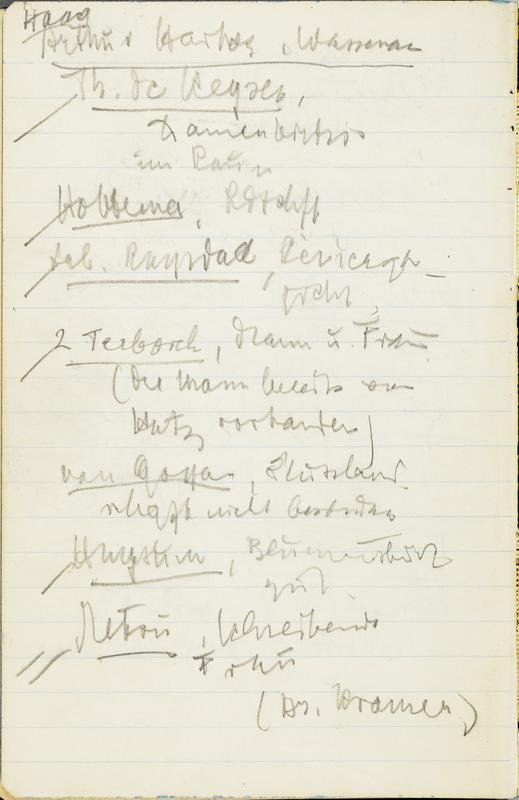 Haag
Arthur Hartog, Wassenaar
Th. de Keyser,
Damenbildnis
im Raum
Hobbema, Ldschft
Jak. Ruysdael,
2 Terborch, Mann u. Frau
(der Mann bereits von
vorhanden)
van Goyen, Flussland
schaft nicht besonders
Huysum, Blumenstück
gut.
Metsu, Schreibende
Frau
(Dr. Kramer)